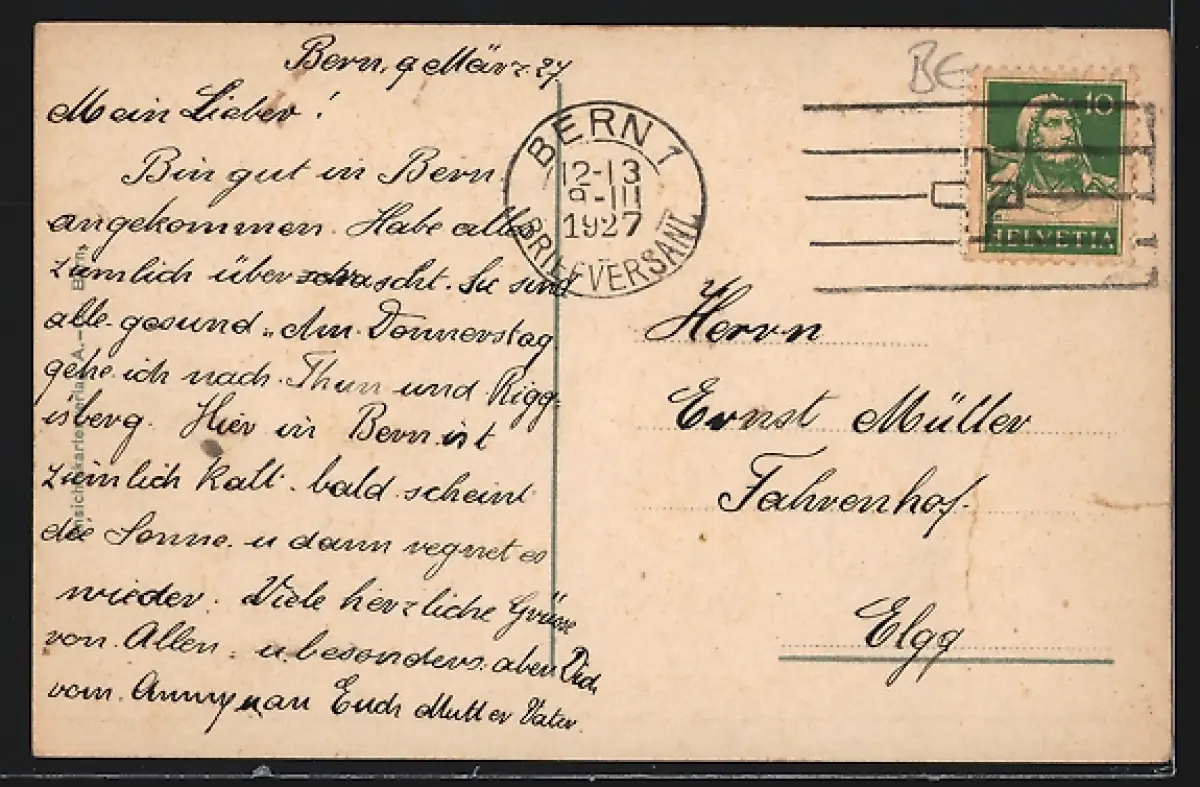 Bern, 9 März 27
Mein Lieber!
Bin gut in Bern
angekommen. Habe alles
zimlich überrascht. Sie sind
alle gesund. Am Donnerstag
gehe ich nach Thun und Rigg-
isberg. Hier in Bern ist
zeimlich kalt. bald scheint
die Sonne u dann regnet es
wieder. Viele herzliche Grüsse
von Allen. u. besonders aber Dich
vom Anny u an Euch Mutter Vater.
Ansichtskartenverlag A.-G. Bern
BERN 1
12-13
9-III
1927
BRIEFVERSAND
BE
10
HELVETIA
Herrn
Ernst Müller
Fahrenhof.
Elgg